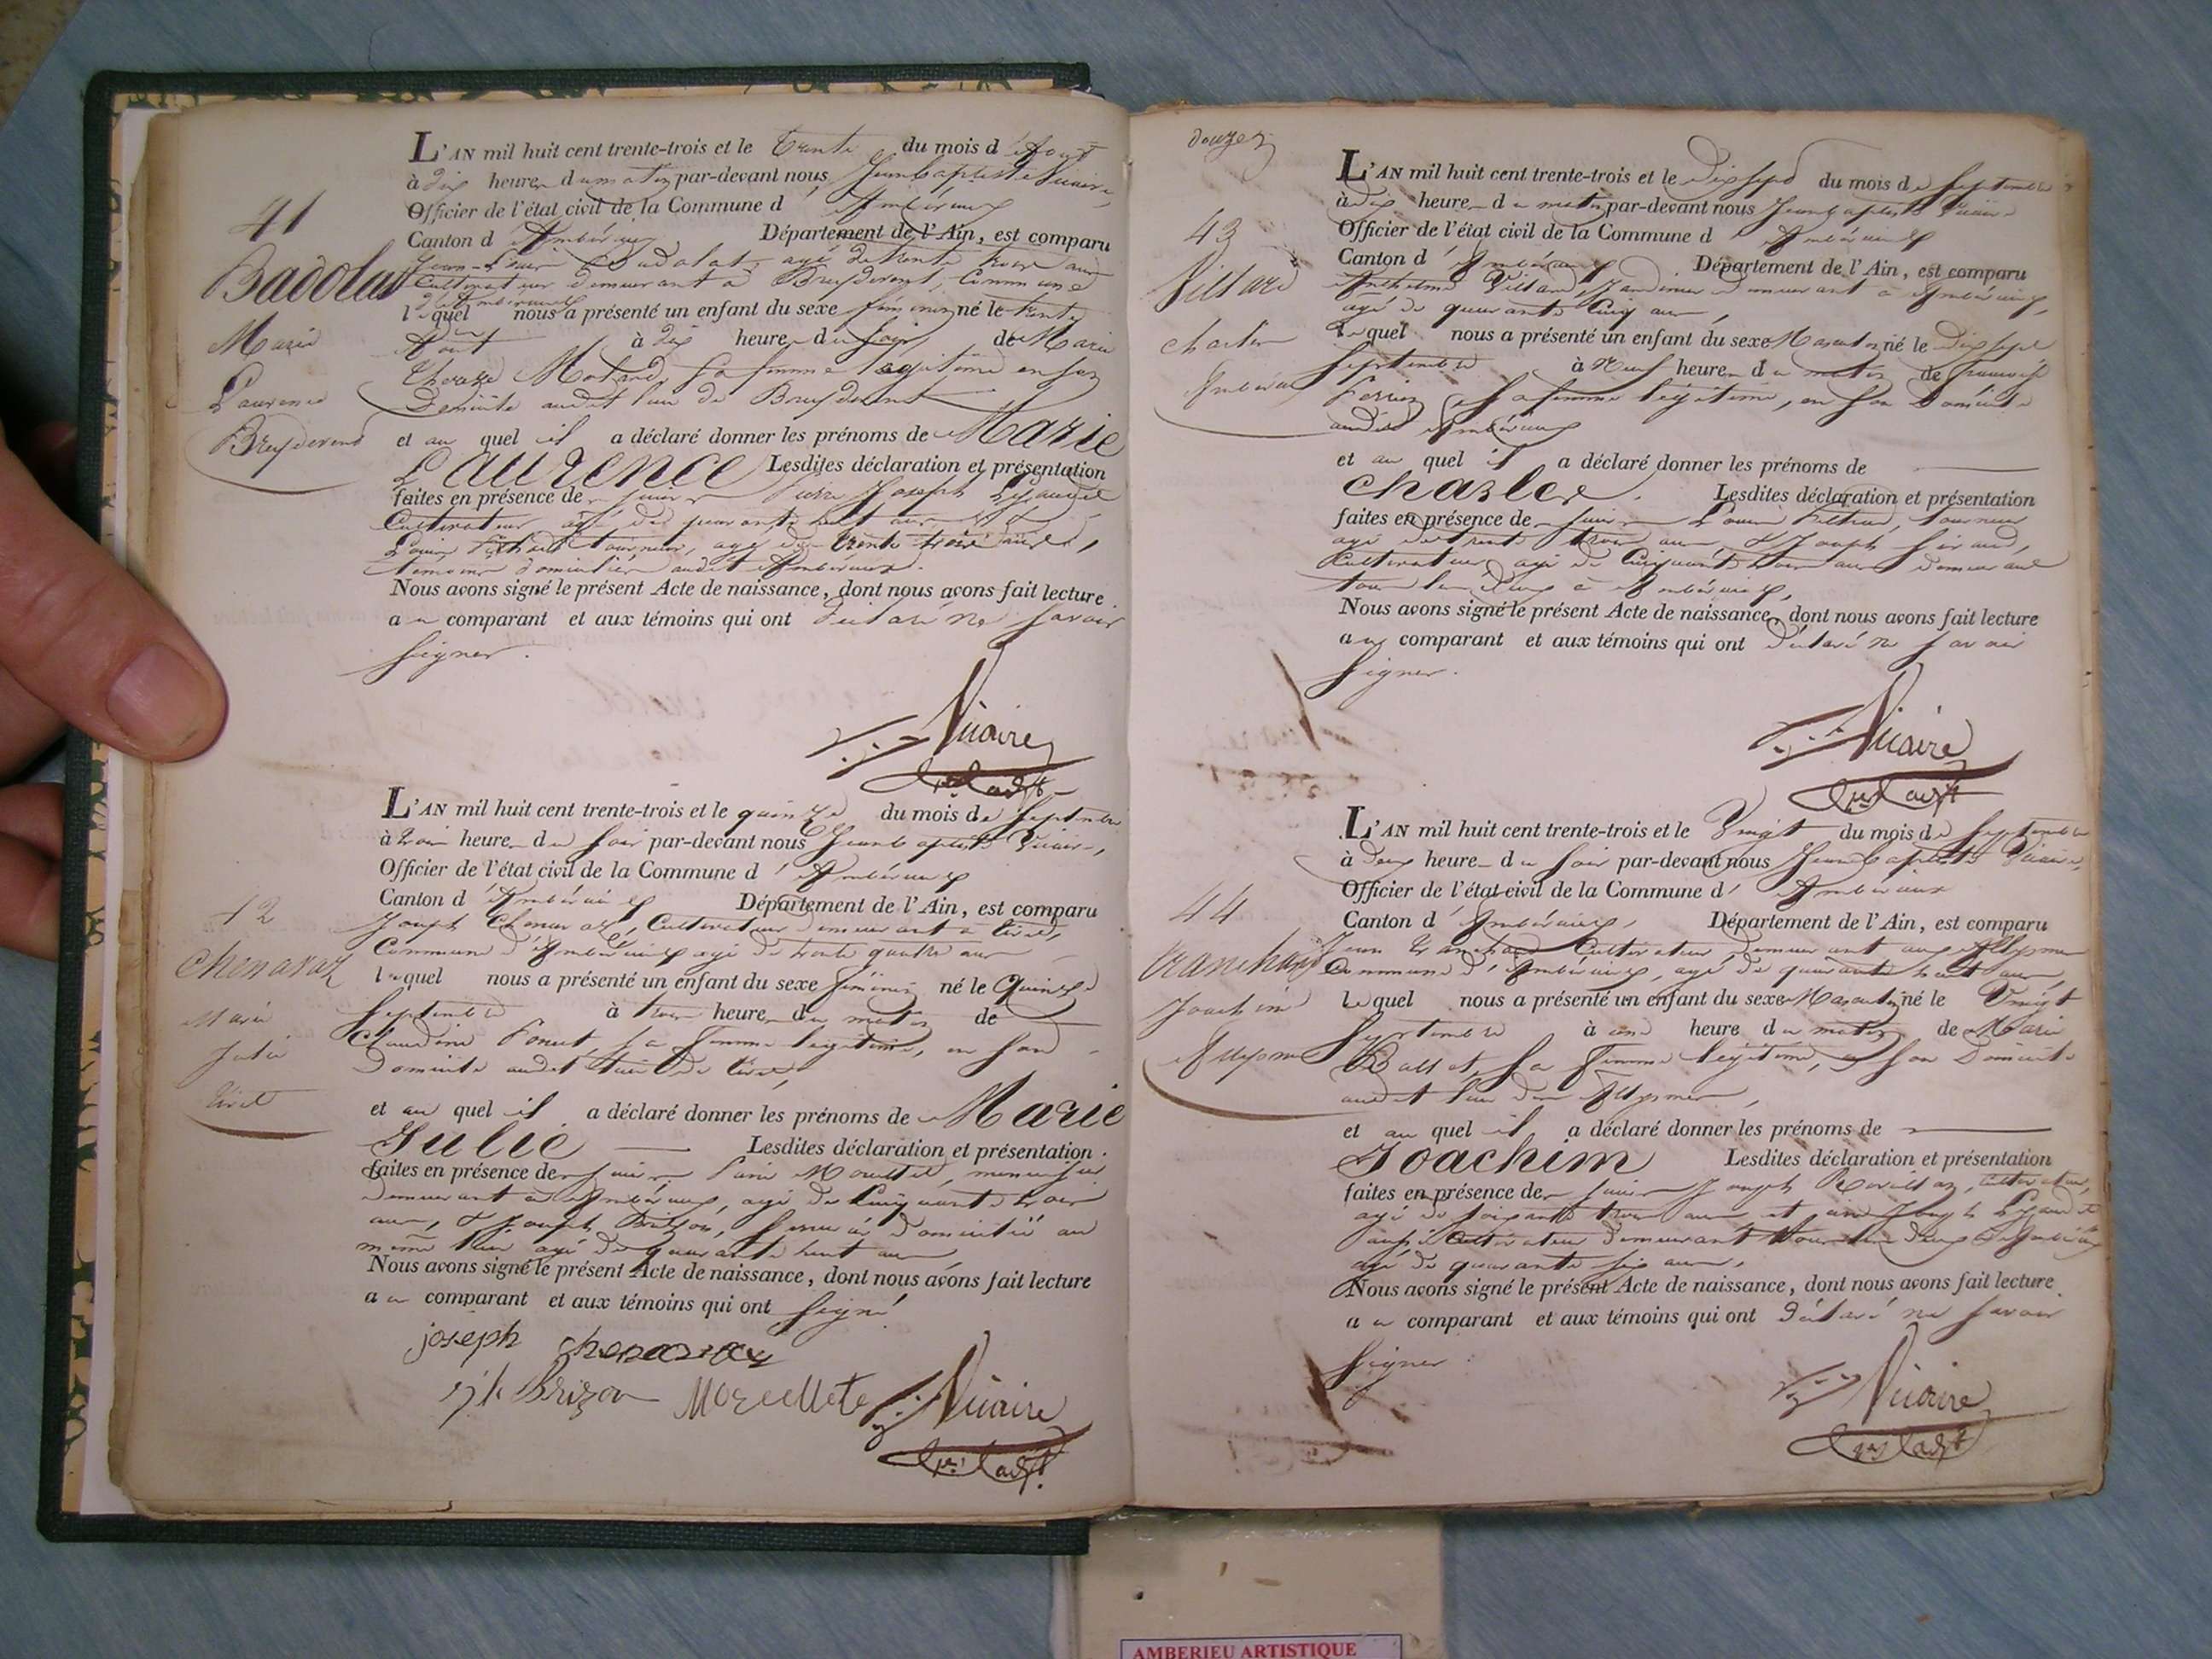 41
Badolas
Marie
Laurence
Breydevent
L'AN mil huit cent trente-trois et le trente du mois d'Aout
à dix heures du matin par-devant nous, Jean Baptiste Vicaire,
Officier de l'état civil de la Commune d'Ambérieux
Canton d'Ambérieux Département de l'Ain, est comparu
agé de trente trois ans
Cultivateur demeurant à Breydevent, Commune
d'Ambérieux
lequel nous a présenté un enfant du sexe féminin né le trente
Aout à dix heures du soir de Marie
sa femme légitime en son
Domicile audit lieu de Breydevent
et au quel il a déclaré donner les prénoms de Marie
Laurence Lesdites déclaration et présentation
faites en présence de Pierre Joseph
Cultivateur agé de quarante huit ans &
Louis tourneur, agé de trente trois ans,
témoins domiciliés audit Ambérieux.
Nous avons signé le présent Acte de naissance, dont nous avons fait lecture
au comparant et aux témoins qui ont déclaré ne savoir
signer.
Vicaire
42
Chenavaz
Marie
Julie
Tiret
L'AN mil huit cent trente-trois et le quinze du mois de Septembre
à trois heures du soir par-devant nous Jean Baptiste Vicaire,
Officier de l'état civil de la Commune d'Ambérieux
Canton d'Ambérieux Département de l'Ain, est comparu
Joseph Chenavaz, Cultivateur demeurant à Tiret,
Commune d'Ambérieux agé de trente quatre ans
lequel nous a présenté un enfant du sexe féminin né le Quinze
Septembre à trois heures du matin de
Claudine sa femme légitime, en son
Domicile audit lieu de Tiret,
et au quel il a déclaré donner les prénoms de Marie
Julie Lesdites déclaration et présentation
faites en présence de menuisier
demeurant à Ambérieux, agé de Cinquante trois
ans, & Joseph Brizon, domicilié au
même lieu agé de quarante huit ans
Nous avons signé le présent Acte de naissance, dont nous avons fait lecture
au comparant et aux témoins qui ont signé
joseph chenavaz
Brizon
Vicaire
douze
43
Villard
charles
Ambérieux
L'AN mil huit cent trente-trois et le dix sept du mois de Septembre
à dix heures du matin par-devant nous Jean Baptiste Vicaire
Officier de l'état civil de la Commune d'Ambérieux
Canton d'Ambérieux Département de l'Ain, est comparu
Anthelme Villard, Jardinier demeurant à Ambérieux,
agé de quarante Cinq ans,
Lequel nous a présenté un enfant du sexe Masculin né le Dix sept
Septembre à Neuf heures du matin de
Perrin sa femme légitime, en son Domicile
audit Ambérieux
et au quel il a déclaré donner les prénoms de
Charles. Lesdites déclaration et présentation
faites en présence de Louis tourneur
agé de trente trois ans & Joseph
Cultivateur agé de Cinquante trois ans demeurant
tous les deux à Ambérieux,
Nous avons signé le présent Acte de naissance, dont nous avons fait lecture
au comparant et aux témoins qui ont déclaré ne savoir
signer.
Vicaire
44
tranchand
Joachim
Allymes
L'AN mil huit cent trente-trois et le Vingt du mois de Septembre
à deux heures du soir par-devant nous Jean Baptiste Vicaire,
Officier de l'état civil de la Commune d'Ambérieux
Canton d'Ambérieux, Département de l'Ain, est comparu
Jean tranchand Cultivateur, demeurant aux Allymes
Commune d'Ambérieux, agé de quarante huit ans,
Lequel nous a présenté un enfant du sexe Masculin né le Vingt
Septembre à une heure du matin de Marie
Ballet, sa femme légitime, en son Domicile
audit lieu des Allymes,
et au quel il a déclaré donner les prénoms de
Joachim Lesdites déclaration et présentation
faites en présence de Joseph cultivateur,
agé de soixante trois ans et Joseph
aussi Cultivateur demeurant tous les deux
agé de quarante six ans,
Nous avons signé le présent Acte de naissance, dont nous avons fait lecture
au comparant et aux témoins qui ont déclaré ne savoir
signer.
Vicaire
AMBERIEU ARTISTIQUE